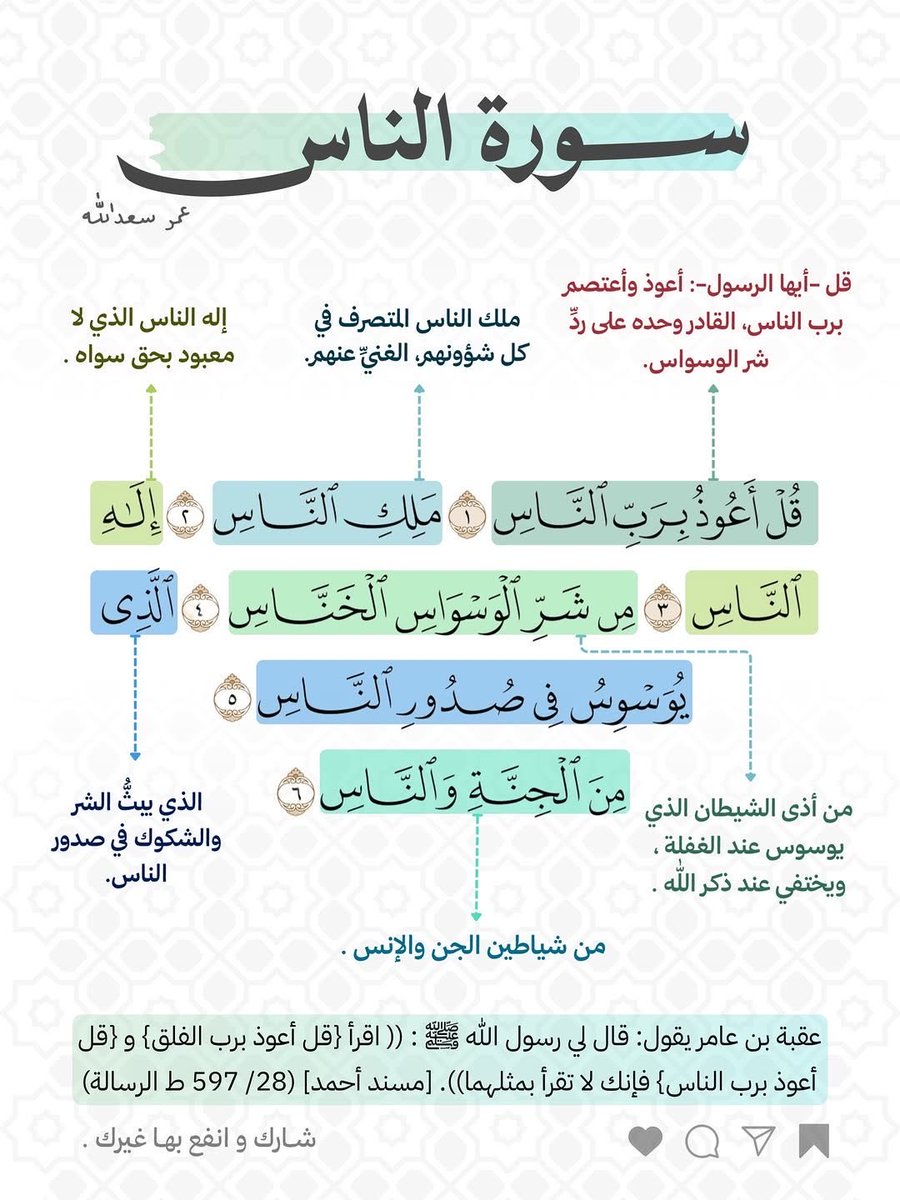 سورة الناس
عمر سعدالله
قل -أيها الرسول-: أعوذ وأعتصم
برب الناس، القادر وحده على ردِّ
شر الوسواس.
ملك الناس المتصرف في
كل شؤونهم، الغنيِّ عنهم.
إله الناس الذي لا
معبود بحق سواه .
قُلْ أَعُوذُ بِرَبِّ ٱلنَّاسِ ١ مَلِكِ ٱلنَّاسِ ٢ إِلَـٰهِ
ٱلنَّاسِ ٣ مِن شَرِّ ٱلْوَسْوَاسِ ٱلْخَنَّاسِ ٤ ٱلَّذِى
يُوَسْوِسُ فِى صُدُورِ ٱلنَّاسِ ٥
مِنَ ٱلْجِنَّةِ وَٱلنَّاسِ ٦
من أذى الشيطان الذي
يوسوس عند الغفلة ،
ويختفي عند ذكر الله .
الذي يبثُّ الشر
والشكوك في صدور
الناس.
من شياطين الجن والإنس .
عقبة بن عامر يقول: قال لي رسول الله ﷺ : (( اقرأ {قل أعوذ برب الفلق} و {قل
أعوذ برب الناس} فإنك لا تقرأ بمثلهما)). [مسند أحمد] (28/ 597 ط الرسالة)
شارك و انفع بها غيرك .